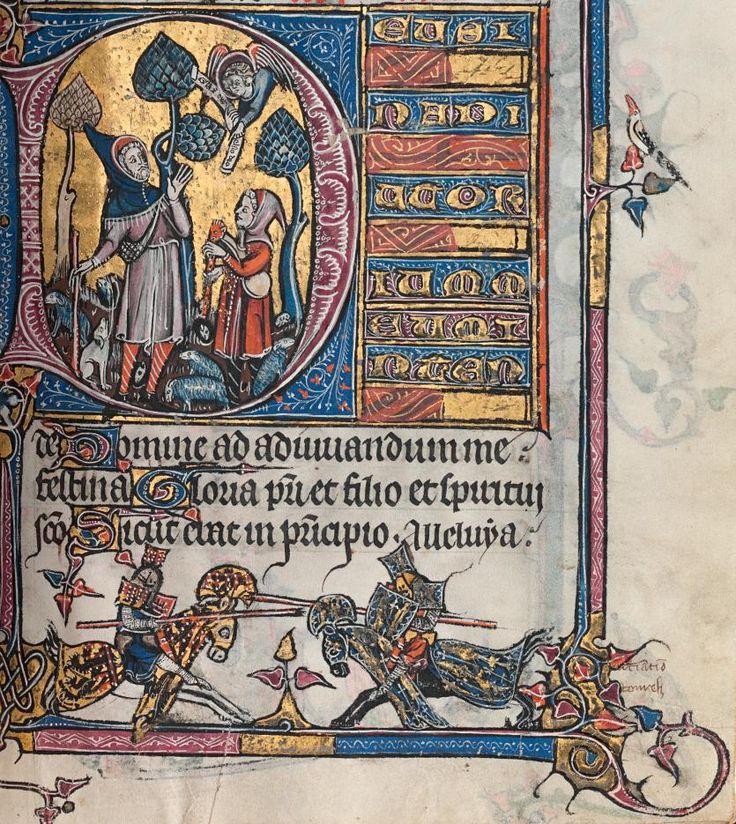 D EUSI
NADI
UTOR
IUMM
EUMI
NTEN
de Domine ad adiuuandum me.
festina Gloria pri et filio et spiritui
sco Sicut erat in pncipio Alleluya.